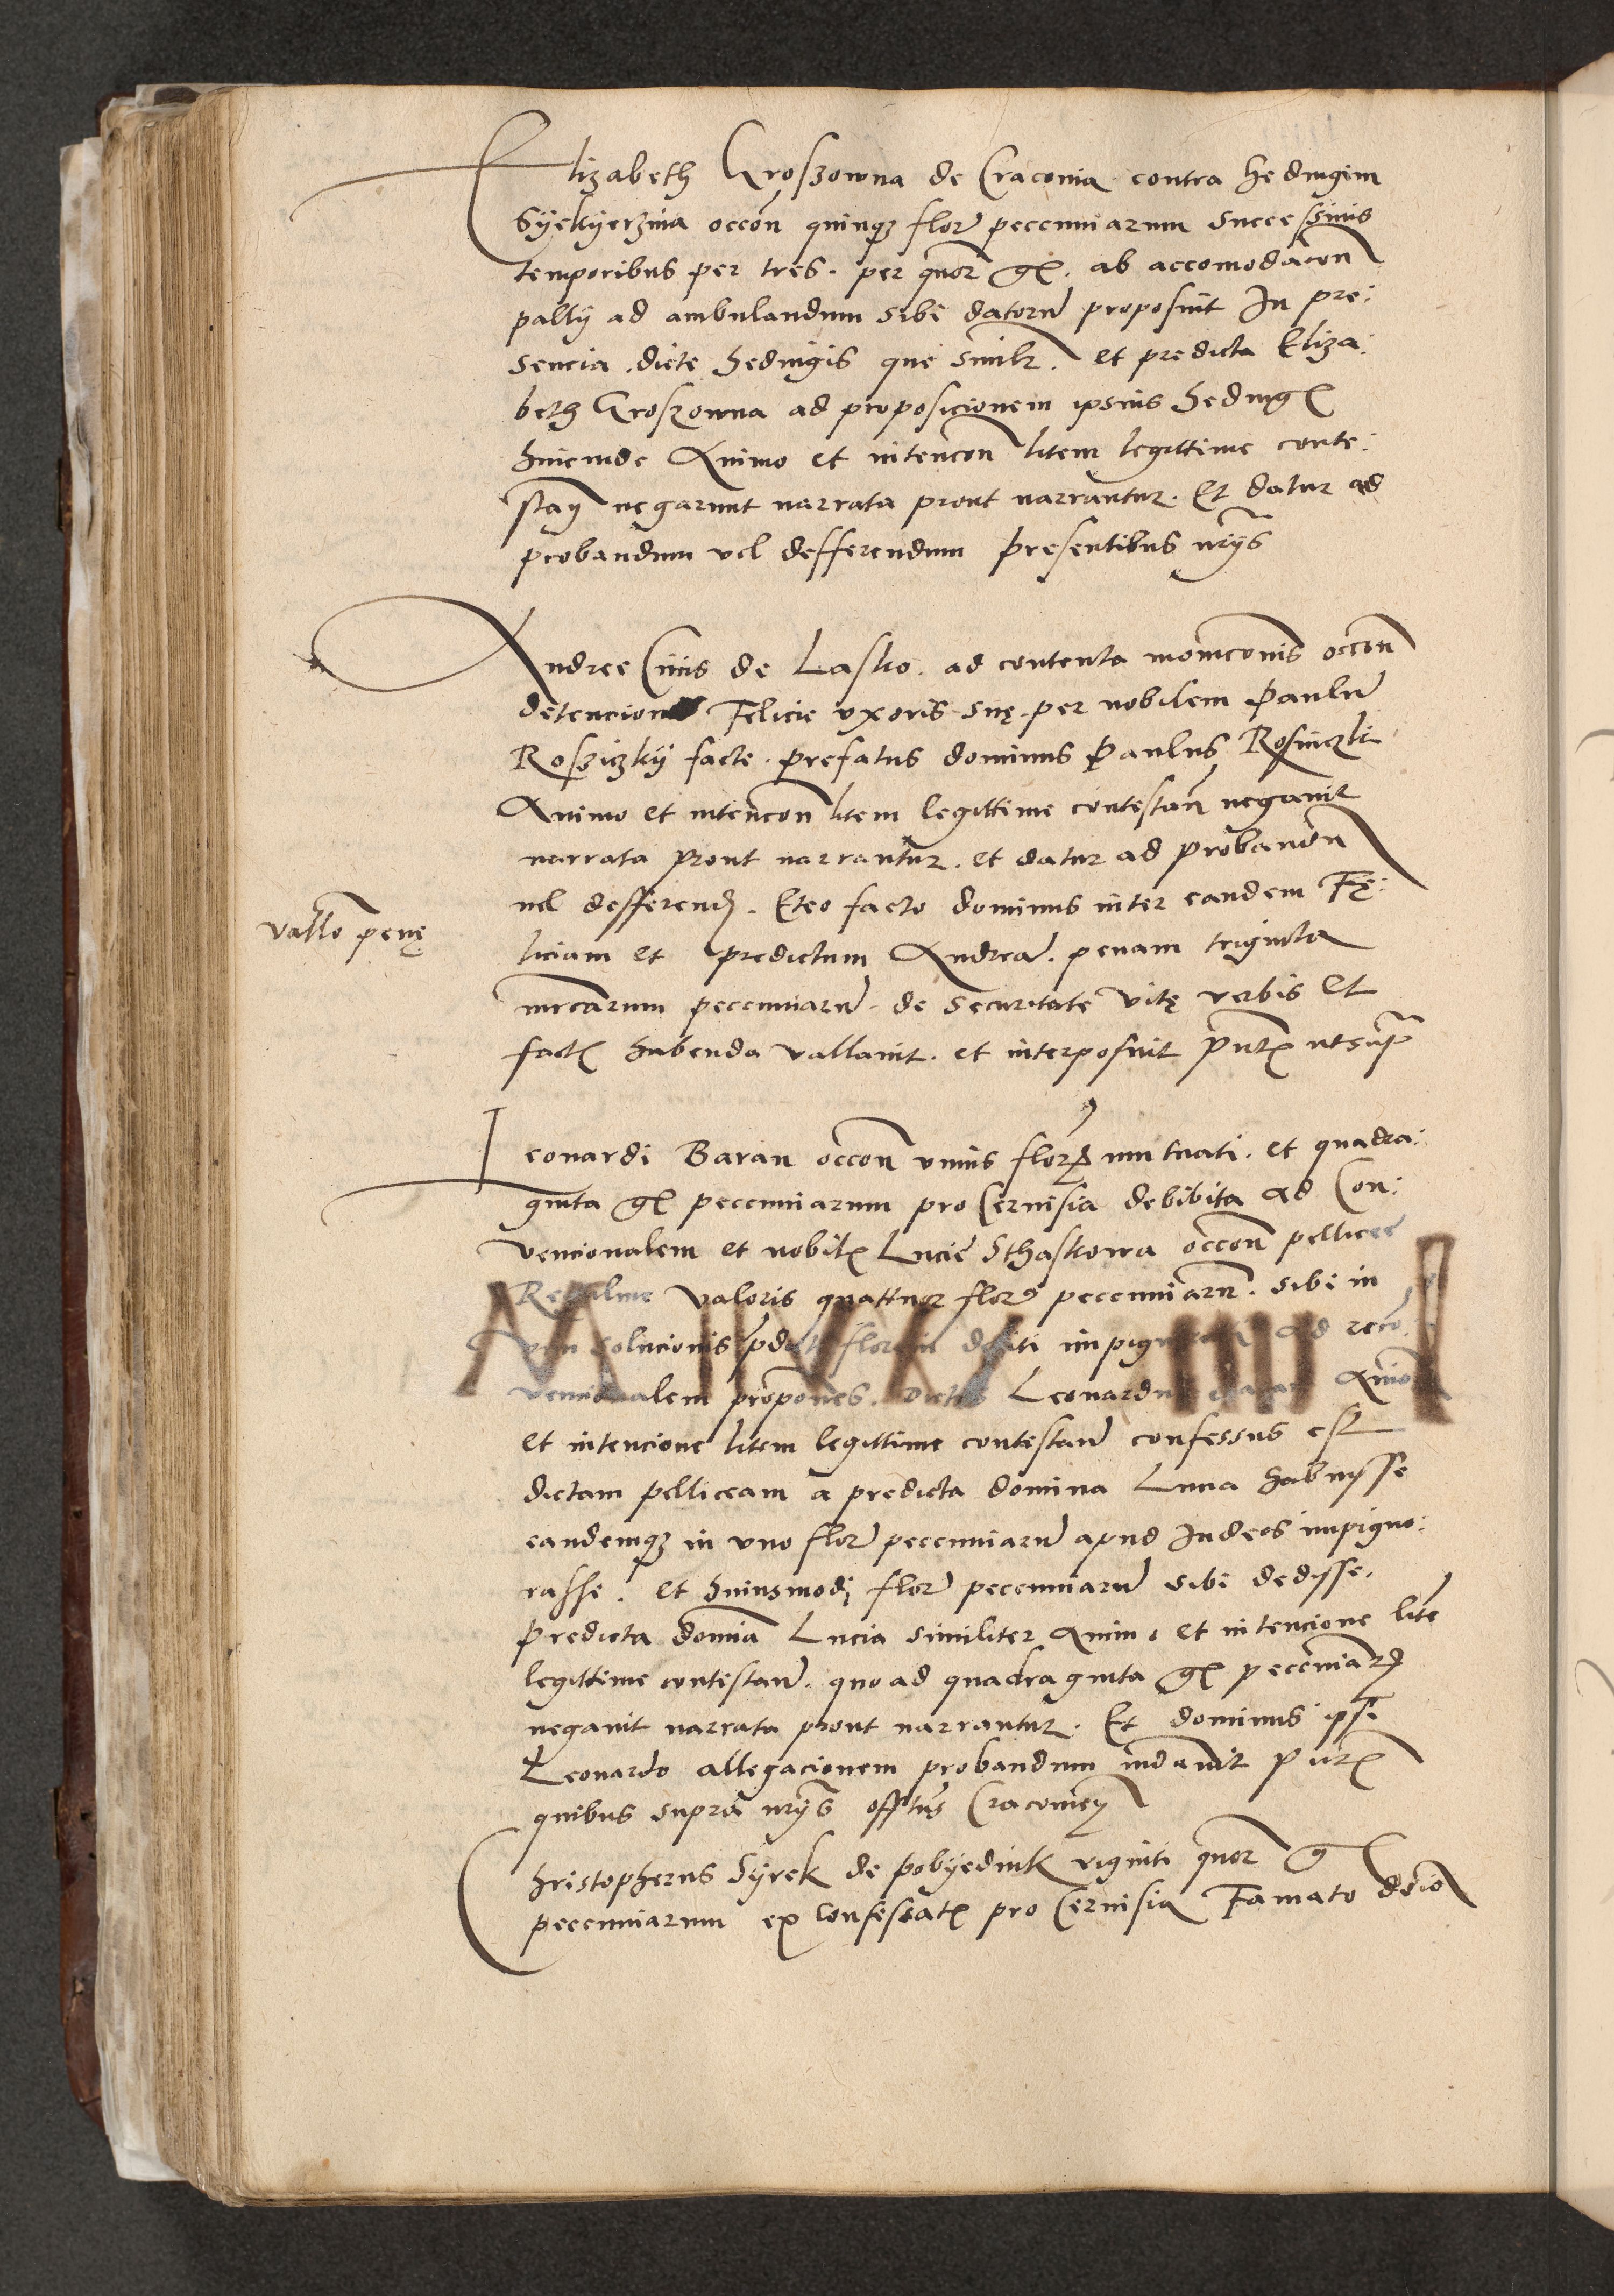 Elizabeth Groszowna de Cracovia contra hedvigim
Syekyerzina occon̄ quinq3 flor̄ peccuniarum successivis
temporibus per tres. per quor̄ gr. ab accomodacōn
pallij ad ambulandum sibi datorū proposuit In pre:
sencia dicte hedvigis que similr. et predicta Eliza:
beth Groszowna ad proposicionem ipsius hedvigis
hincinde Animo et intencōn litem legittime conte:
stan̄ negarunt narrata prout narrantur. Et datur ad
probandum vel defferendum presentibus nrijs
Andree Civis de Lasko. ad contenta monicōnis occōn
detencionis Felicie vxoris suę. per nobilem Paulū
Rosziczky facte. prefatus dominus Paulus Rosiczki
Animo et intencōn litem legittime contestan̄ negavit
narrata prout narrantur. et datur ad probandū
vel defferend. Et eo facto dominus inter eandem Fę:
vallō penę
liciam et predictum Andreā. penam triginta
mrcarum peccuniarū. de securitate vitę verbis et
factis habenda vallavit. et interposuit pn̄tibus ut supra
Leonardi Baran occōn vnius floren̄ mutuati. et quadra:
ginta gr peccuniarum pro Cervisia debibita ad Con:
vencionalem et nobilis Lucie Sthaskowa occōn pellicee
valoris quattuor flor̄ peccuniarū. sibi in
solucionis
vencionalem propōnes. Leonardus Animo
et intencione litem legittime contestan̄ confessus est
dictam pelliceam a predicta domina Lucia habuysse
eandemq3 in vno flor̄ peccuniarū apud Judeos impigno:
rasse. et huiusmodi flor̄ peccuniarū sibi dedysse.
predicta domīa Lucia similiter Animo et intencione litē
legittime contestan̄. quo ad quadraginta gr peccuniarū
negavit narrata prout narrantur. Et dominus ipsi
Leonardo allegacionem probandum indauit pn̄tibus
quibus supra nrijs offitus Cracovien
Christopherus Syrek de pobyednik viginti quor̄ gr
peccuniarum ex confessatis pro Cervisia Famato